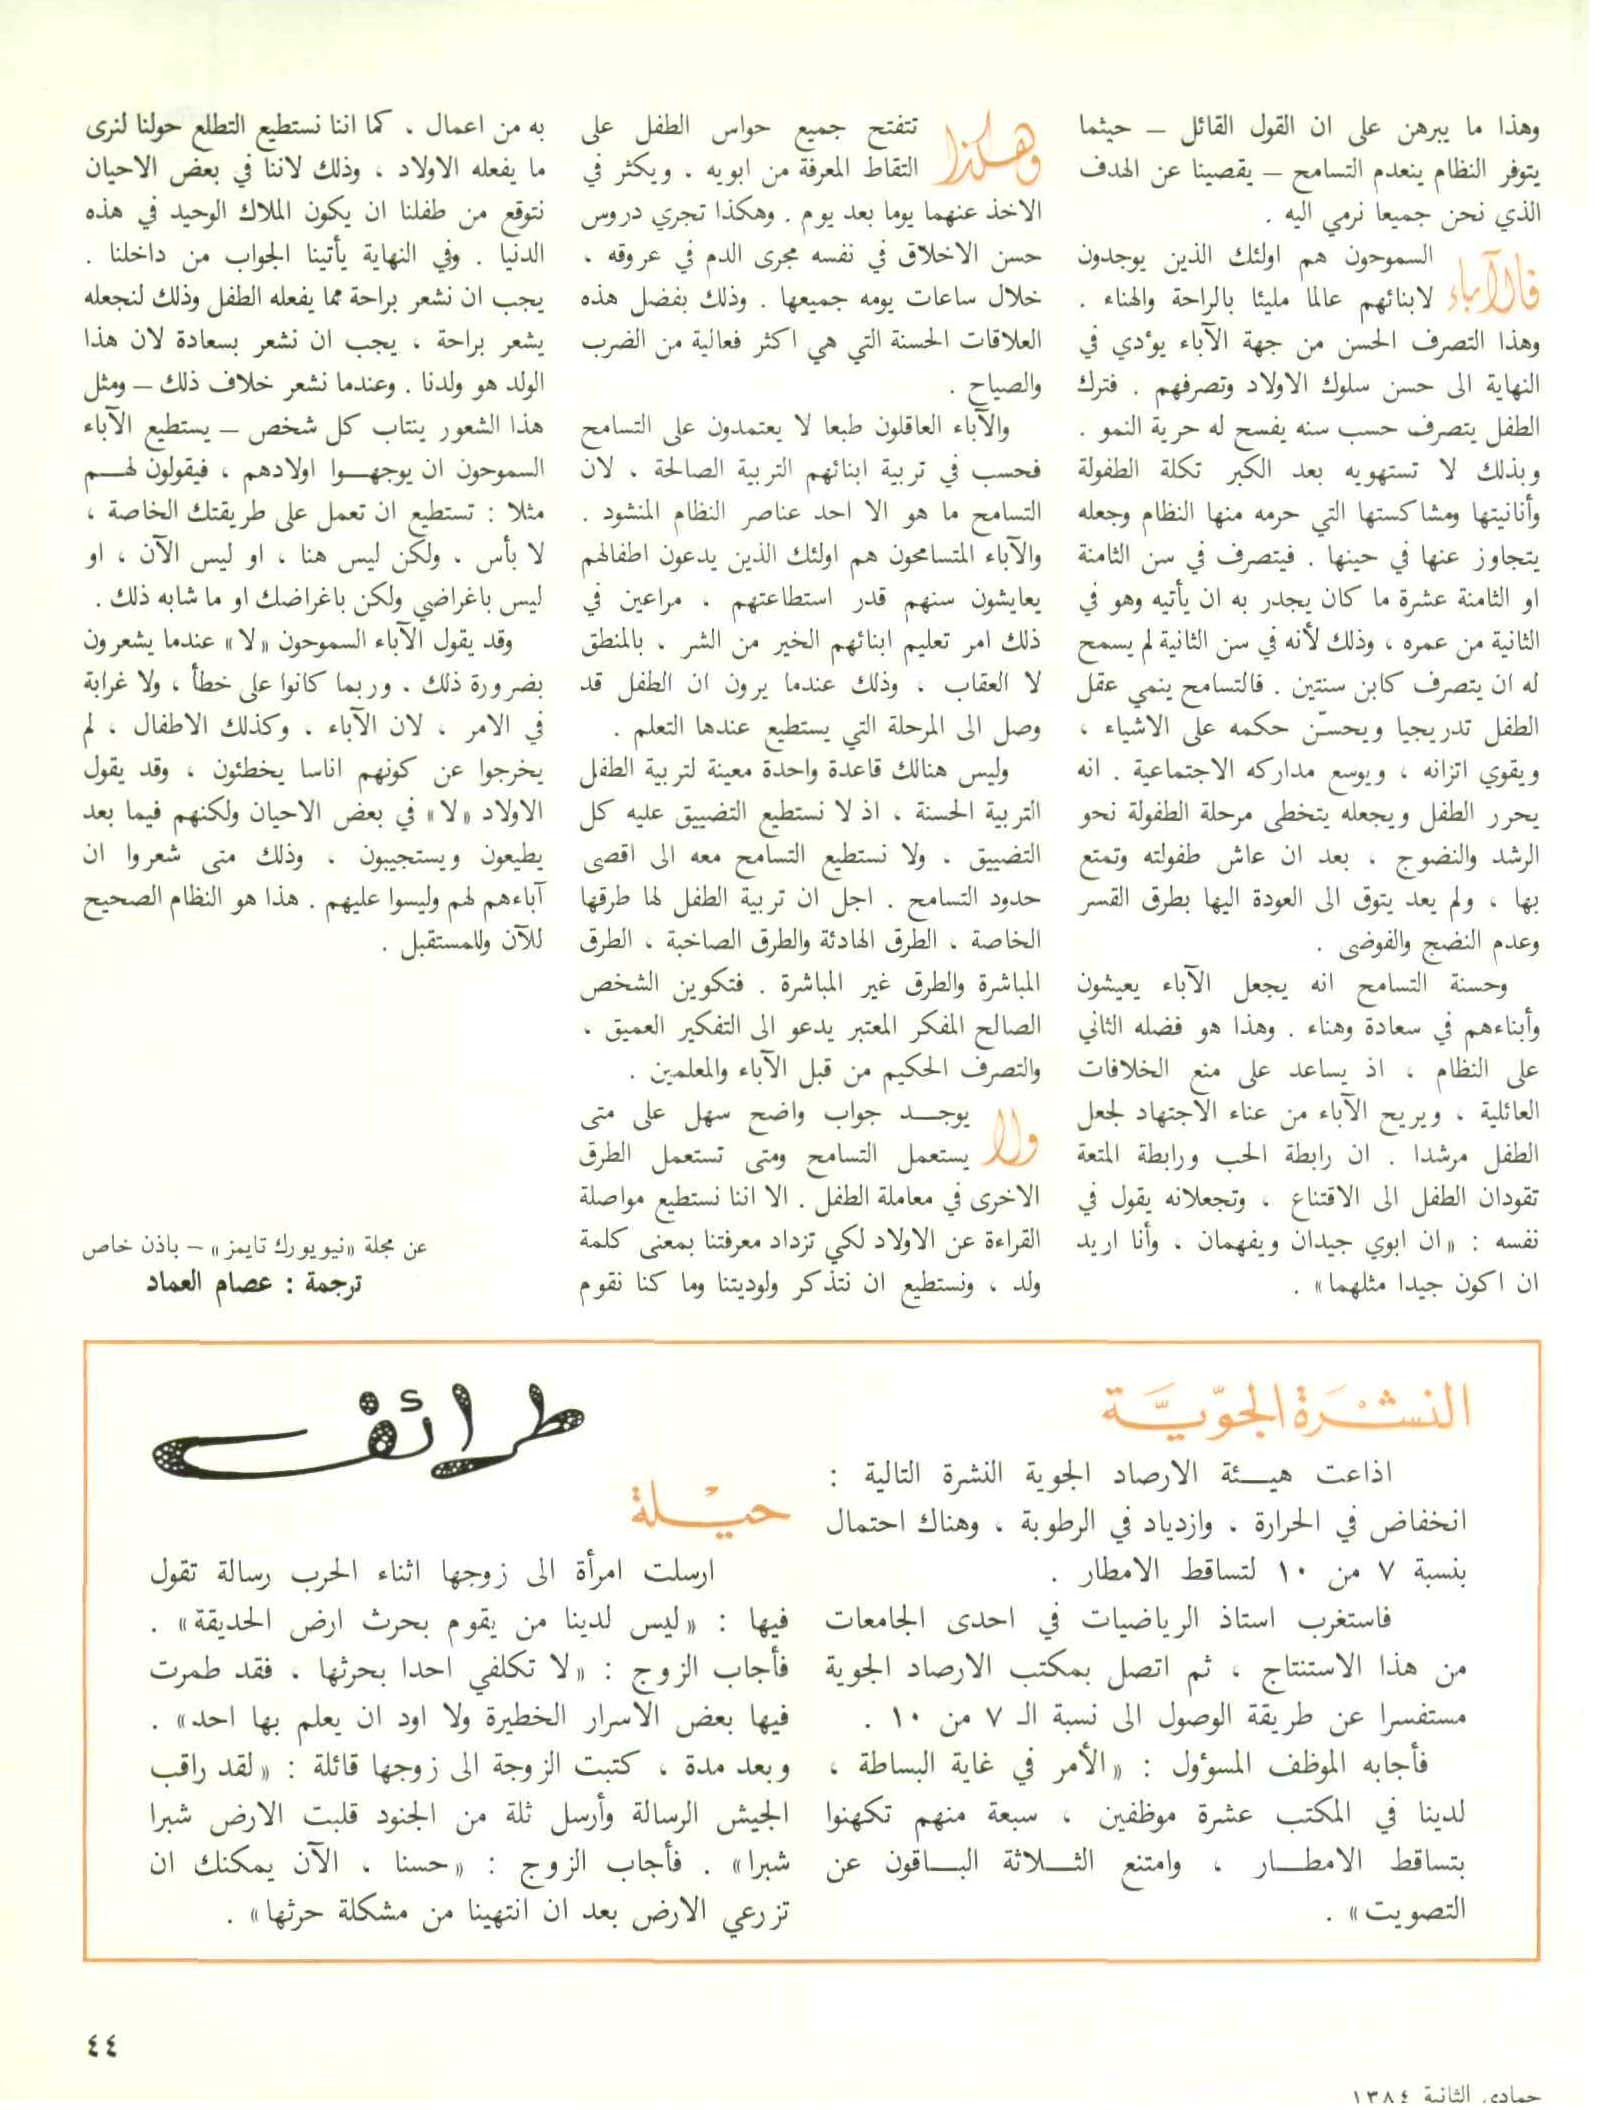 وهذا ما يبرهن على ان القول القائل – حيثما
يتوفر النظام ينعدم التسامح – يقصينا عن الهدف
الذي نحن جميعا نرمي اليه .
فالآباء السموحون هم اولئك الذين يوجدون
لابنائهم عالما مليئا بالراحة والهناء .
وهذا التصرف الحسن من جهة الآباء يؤدي في
النهاية الى حسن سلوك الاولاد وتصرفهم . فترك
الطفل يتصرف حسب سنه يفسح له حرية النمو .
وبذلك لا تستهويه بعد الكبر تكلة الطفولة
وأنانيتها ومشاكستها التي حرمه منها النظام وجعله
يتجاوز عنها في حينها . فيتصرف في سن الثامنة
او الثامنة عشرة ما كان يجدر به ان يأتيه وهو في
الثانية من عمره ، وذلك لأنه في سن الثانية لم يسمح
له ان يتصرف كابن سنتين . فالتسامح ينمي عقل
الطفل تدريجيا ويحسّن حكمه على الاشياء ،
ويقوي اتزانه ، ويوسع مداركه الاجتماعية . انه
يحرر الطفل ويجعله يتخطى مرحلة الطفولة نحو
الرشد والنضوج ، بعد ان عاش طفولته وتمتع
بها ، ولم يعد يتوق الى العودة اليها بطرق القسر
وعدم النضج والفوضى .
وحسنة التسامح انه يجعل الآباء يعيشون
وأبناءهم في سعادة وهناء . وهذا هو فضله الثاني
على النظام ، اذ يساعد على منع الخلافات
العائلية ، ويريح الآباء من عناء الاجتهاد لجعل
الطفل مرشدا . ان رابطة الحب ورابطة المتعة
تقودان الطفل الى الاقتناع ، وتجعلانه يقول في
نفسه : «ان ابوي جيدان ويفهمان ، وأنا اريد
ان اكون جيدا مثلهما» .
وهكذا تتفتح جميع حواس الطفل على
التقاط المعرفة من ابويه ، ويكثر في
الاخذ عنهما يوما بعد يوم . وهكذا تجري دروس
حسن الاخلاق في نفسه مجرى الدم في عروقه ،
خلال ساعات يومه جميعها . وذلك بفضل هذه
العلاقات الحسنة التي هي اكثر فعالية من الضرب
والصياح .
والآباء العاقلون طبعا لا يعتمدون على التسامح
فحسب في تربية ابنائهم التربية الصالحة ، لان
التسامح ما هو الا احد عناصر النظام المنشود .
والآباء المتسامحون هم اولئك الذين يدعون اطفالهم
يعايشون سنهم قدر استطاعتهم ، مراعين في
ذلك امر تعليم ابنائهم الخير من الشر ، بالمنطق
لا العقاب ، وذلك عندما يرون ان الطفل قد
وصل الى المرحلة التي يستطيع عندها التعلم .
وليس هنالك قاعدة واحدة معينة لتربية الطفل
التربية الحسنة ، اذ لا نستطيع التضييق عليه كل
التضييق ، ولا نستطيع التسامح معه الى اقصى
حدود التسامح . اجل ان تربية الطفل لها طرقها
الخاصة ، الطرق الهادئة والطرق الصاخبة ، الطرق
المباشرة والطرق غير المباشرة . فتكوين الشخص
الصالح المفكر المعتبر يدعو الى التفكير العميق ،
والتصرف الحكيم من قبل الآباء والمعلمين .
ولا يوجـــد جواب واضح سهل على متى
يستعمل التسامح ومتى تستعمل الطرق
الاخرى في معاملة الطفل . الا اننا نستطيع مواصلة
القراءة عن الاولاد لكي تزداد معرفتنا بمعنى كلمة
ولد ، ونستطيع ان نتذكر ولوديتنا وما كنا نقوم
به من اعمال ، كما اننا نستطيع التطلع حولنا لنرى
ما يفعله الاولاد ، وذلك لاننا في بعض الاحيان
نتوقع من طفلنا ان يكون الملاك الوحيد في هذه
الدنيا . وفي النهاية يأتينا الجواب من داخلنا .
يجب ان نشعر براحة مما يفعله الطفل وذلك لنجعله
يشعر براحة ، يجب ان نشعر بسعادة لان هذا
الولد هو ولدنا . وعندما نشعر خلاف ذلك – ومثل
هذا الشعور ينتاب كل شخص – يستطيع الآباء
السموحون ان يوجهـــوا اولادهم ، فيقولون لهـــم
مثلا : تستطيع ان تعمل على طريقتك الخاصة ،
لا بأس ، ولكن ليس هنا ، او ليس الآن ، او
ليس باغراضي ولكن باغراضك او ما شابه ذلك .
وقد يقول الآباء السموحون «لا» عندما يشعرون
بضرورة ذلك . وربما كانوا على خطأ ، ولا غرابة
في الامر ، لان الآباء ، وكذلك الاطفال ، لم
يخرجوا عن كونهم اناسا يخطئون ، وقد يقول
الاولاد «لا» في بعض الاحيان ولكنهم فيما بعد
يطيعون ويستجيبون ، وذلك متى شعروا ان
آباءهم لهم وليسوا عليهم . هذا هو النظام الصحيح
للآن وللمستقبل .
عن مجلة «نيويورك تايمز» – باذن خاص
ترجمة : عصام العماد
طرائف
النشْرَة الجوّيَّة
اذاعت هيـــئة الارصاد الجوية النشرة التالية :
انخفاض في الحرارة ، وازدياد في الرطوبة ، وهناك احتمال
بنسبة ٧ من ١٠ لتساقط الامطار .
فاستغرب استاذ الرياضيات في احدى الجامعات
من هذا الاستنتاج ، ثم اتصل بمكتب الارصاد الجوية
مستفسرا عن طريقة الوصول الى نسبة الـ ٧ من ١٠ .
فأجابه الموظف المسؤول : «الأمر في غاية البساطة ،
لدينا في المكتب عشرة موظفين ، سبعة منهم تكهنوا
بتساقط الامطـــار ، وامتنع الثـــلاثة البـــاقون عن
التصويت» .
حيْلة
ارسلت امرأة الى زوجها اثناء الحرب رسالة تقول
فيها : «ليس لدينا من يقوم بحرث ارض الحديقة» .
فأجاب الزوج : «لا تكلفي احدا بحرثها ، فقد طمرت
فيها بعض الاسرار الخطيرة ولا اود ان يعلم بها احد» .
وبعد مدة ، كتبت الزوجة الى زوجها قائلة : «لقد راقب
الجيش الرسالة وأرسل ثلة من الجنود قلبت الارض شبرا
شبرا» . فأجاب الزوج : «حسنا ، الآن يمكنك ان
تزرعي الارض بعد ان انتهينا من مشكلة حرثها» .
٤٤
جمادى الثانية ١٣٨٤